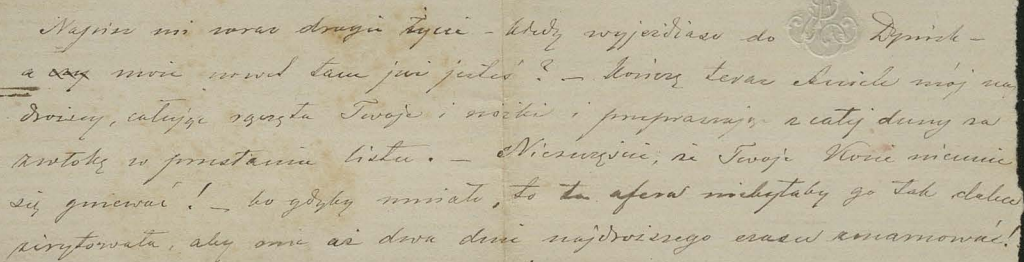 Napisz mi zaraz drogie życie – kiedy wyjeżdżasz do Dymek –
a może nawet tam już jesteś? – Kończę teraz Aniele mój naj
droższy, całując rączęta Twoje i nóżki i przepraszając z całej duszy za
zwłokę w przesłaniu listu. – Nieszczęście, że Twoje Kocie nieumie
się gniewać! – bo gdyby umiało, to ta afera niebyłaby go tak dalece
zirytowała, aby ono aż dwa dni najdroższego czasu zmarnować!